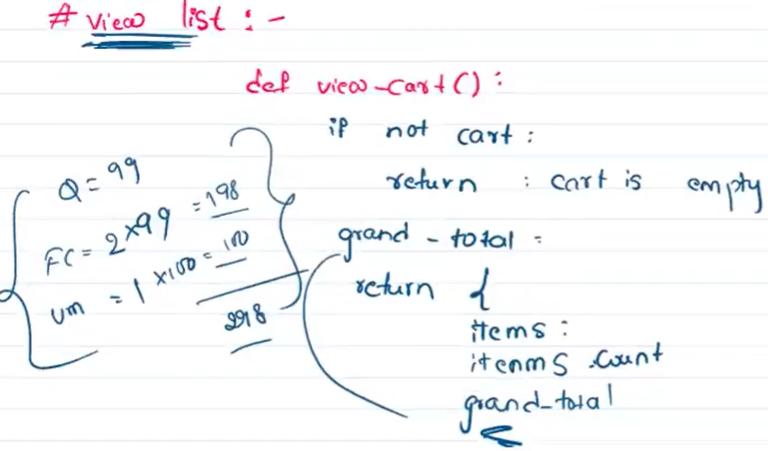 # view list : -
def view-cart() :
if not cart :
return : cart is empty
grand - total =
return {
items :
itenms .count
grand_total
Q = 99
FC = 2 x 99 = 198
um = 1 x 100 = 100
298